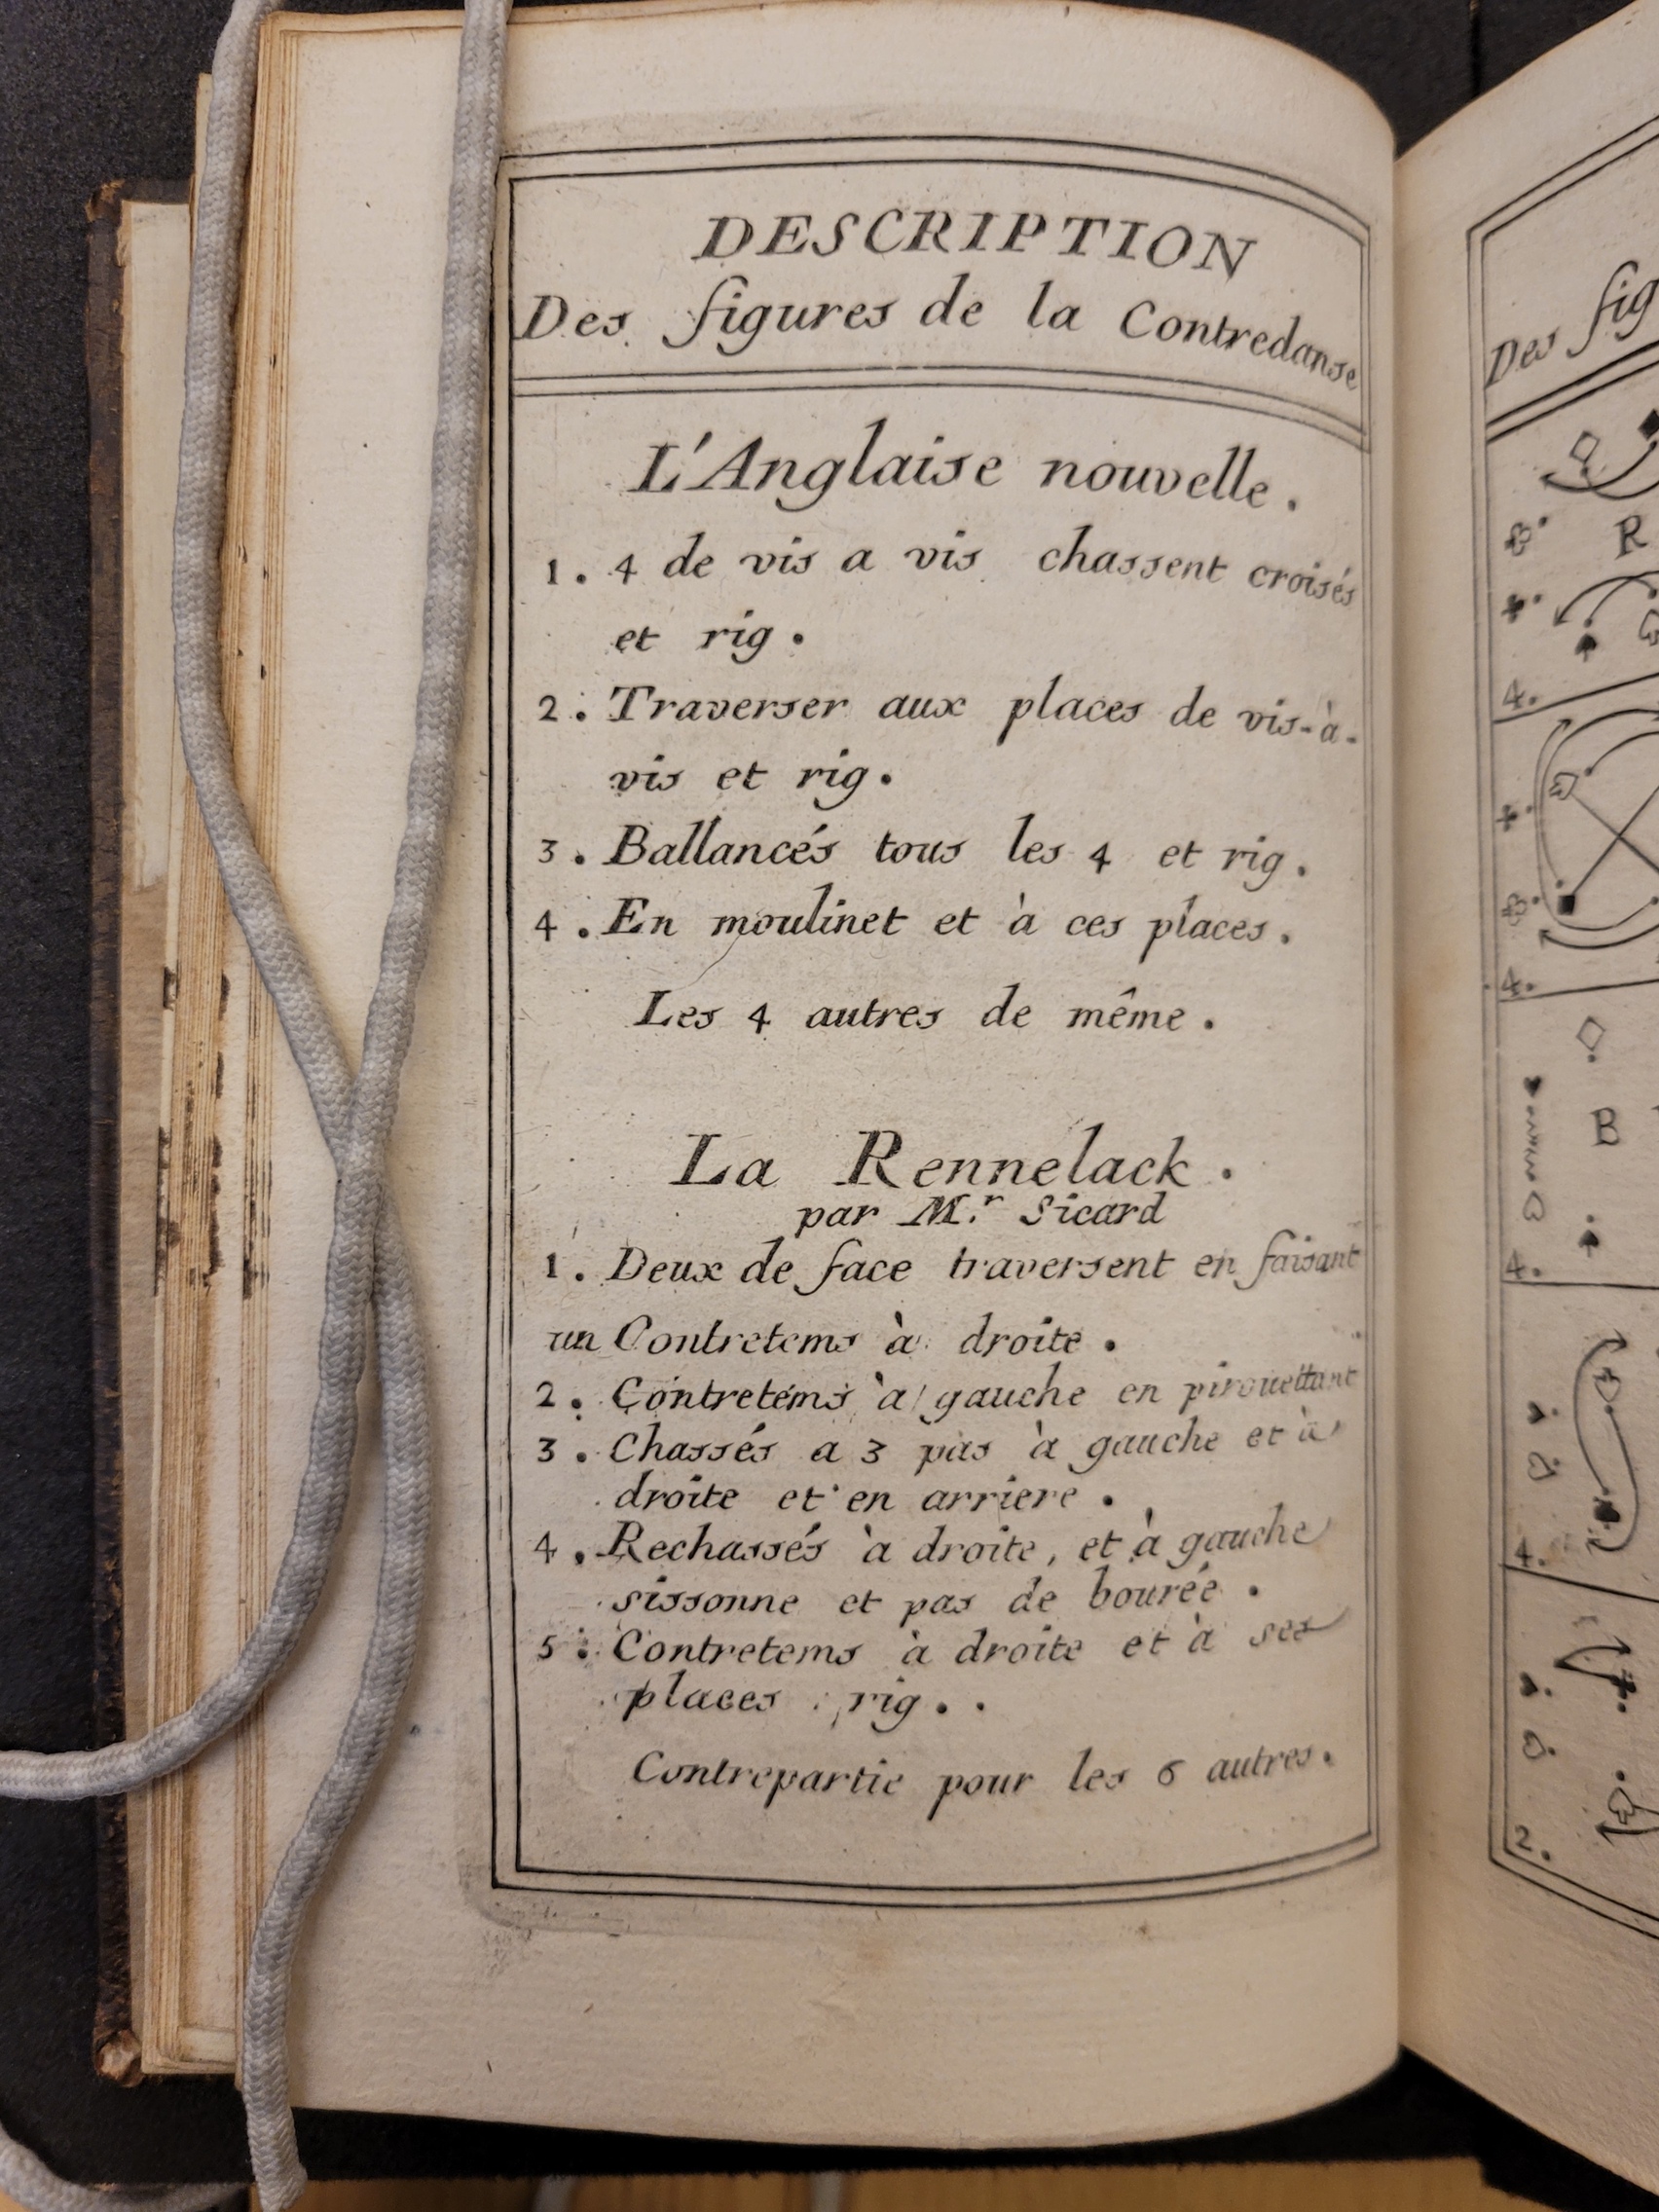 DESCRIPTION
Des figures de la Contredanse
L'Anglaise nouvelle.
1. 4 de vis a vis chassent croisés
et rig.
2. Traverser aux places de vis-à-
vis et rig.
3. Ballancés tous les 4 et rig.
4. En moulinet et à ces places.
Les 4 autres de même.
La Rennelack.
par M.r Sicard
1. Deux de face traversent en faisant
un Contretems à droite.
2. Contretems à gauche en pirouettant
3. Chassés a 3 pas à gauche et à
droite et en arriere.
4. Rechassés à droite, et à gauche
sissonne et pas de bourée.
5. Contretems à droite et à ses
places rig.
Contrepartie pour les 6 autres.
Des fig
R
4.
4.
B
4.
4.
2.